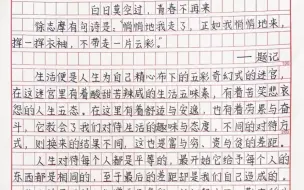 白日莫空过，青春不再来
徐志摩有句诗是："悄悄地我走了，正如我悄悄地来，
挥一挥衣袖，不带走一片云彩。"
——题记
生活便是人生为自己精心布下的五彩奇幻式的迷宫，
在这迷宫里有着酸甜苦辣咸的生活五味素，有着苦笑悲哀
怨的人生五态。在这里有着舒适与安逸，也有着苛累与奋
斗。它教会了我们对待生活的趣味与态度，不同的对待方
式，则换来的结果不同，这也是富与穷、贵与贱的差距。
人生对待每个人都是平等的，最开始它给予每个人的
东西都是相同的，至于最后的差距都是我们自己造成的。